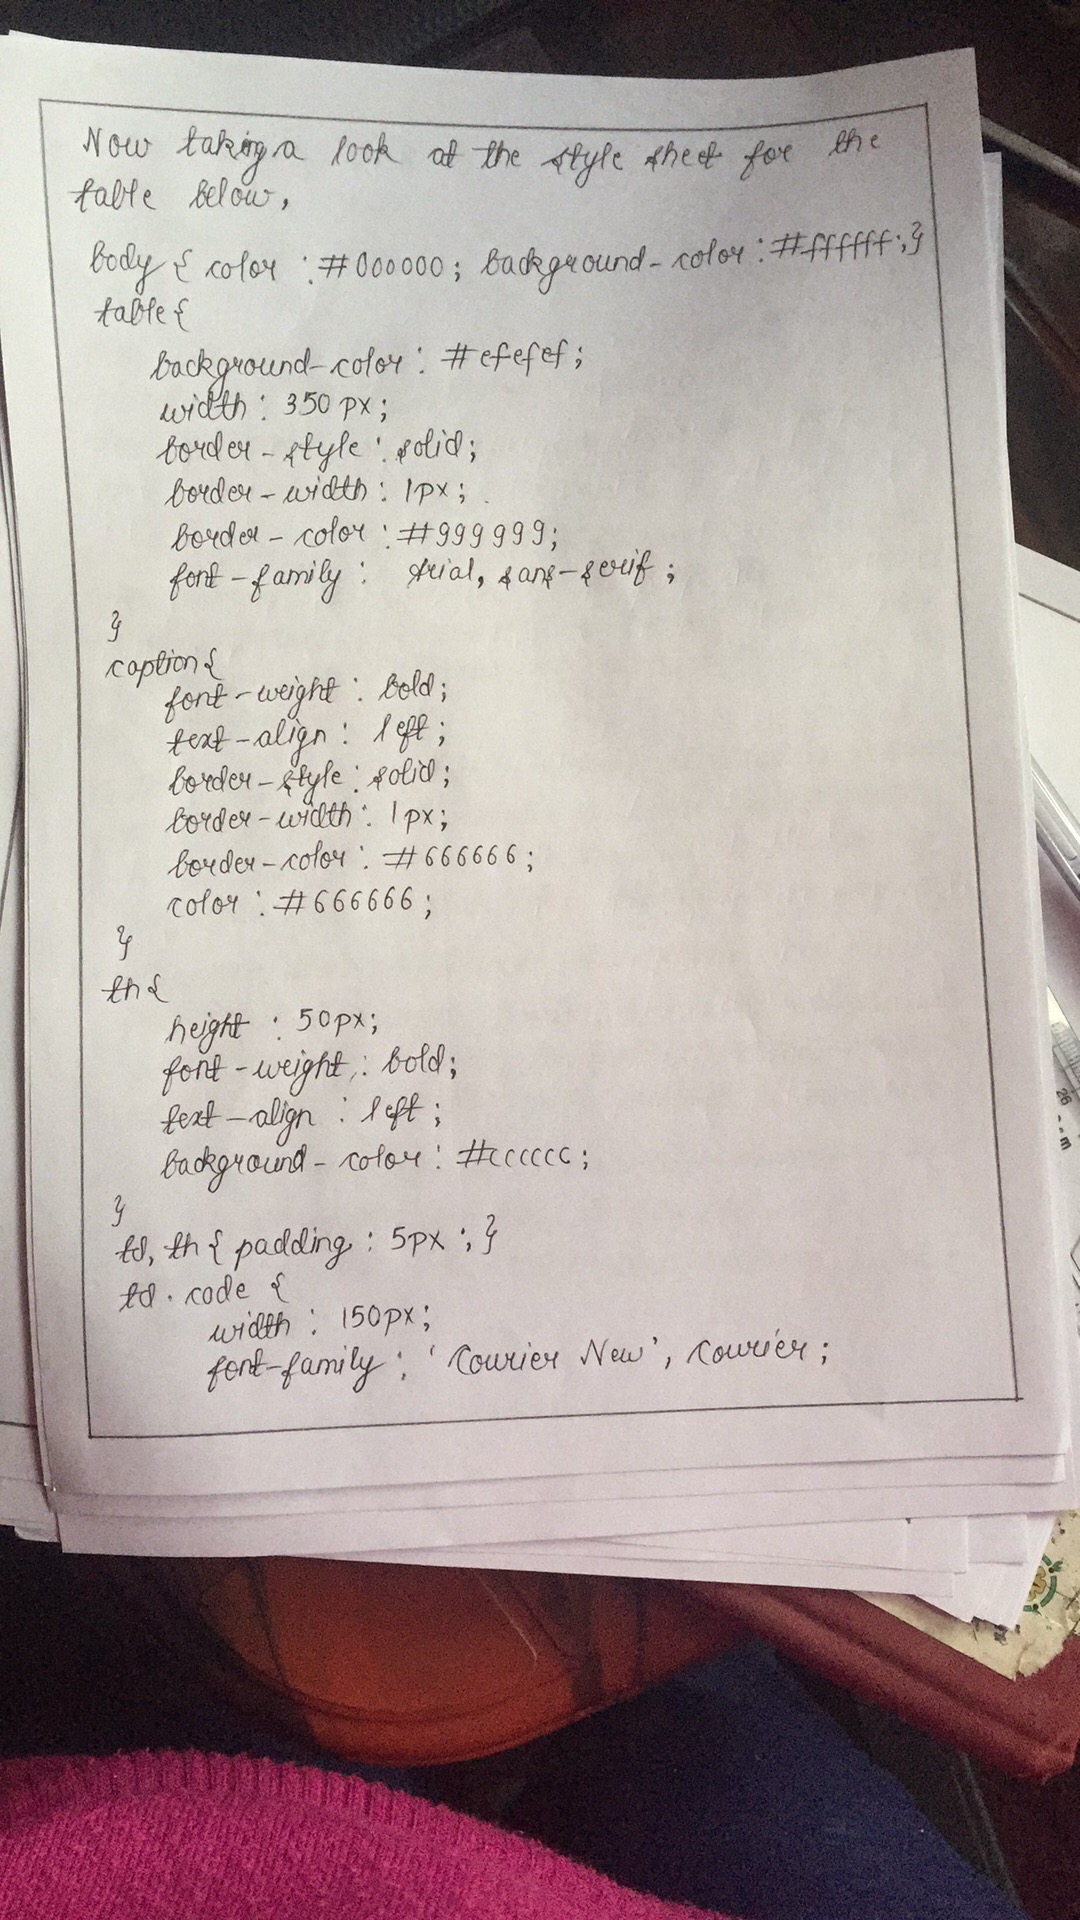 Now taking a look at the style sheet for the
table below,
body { color : #000000; background-color : #ffffff;}
table {
background-color : #efefef;
width : 350 px;
border-style : solid;
border-width : 1px;
border-color : #999999;
font-family : Arial, sans-serif;
}
caption {
font-weight : bold;
text-align : left;
border-style : solid;
border-width : 1px;
border-color : #666666;
color : #666666;
}
th {
height : 50px;
font-weight : bold;
text-align : left;
background-color : #cccccc;
}
td, th { padding : 5px ;}
td.code {
width : 150px;
font-family : 'Courier New', courier;